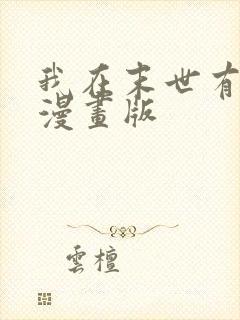 我在末世有
漫畫版
雲檀